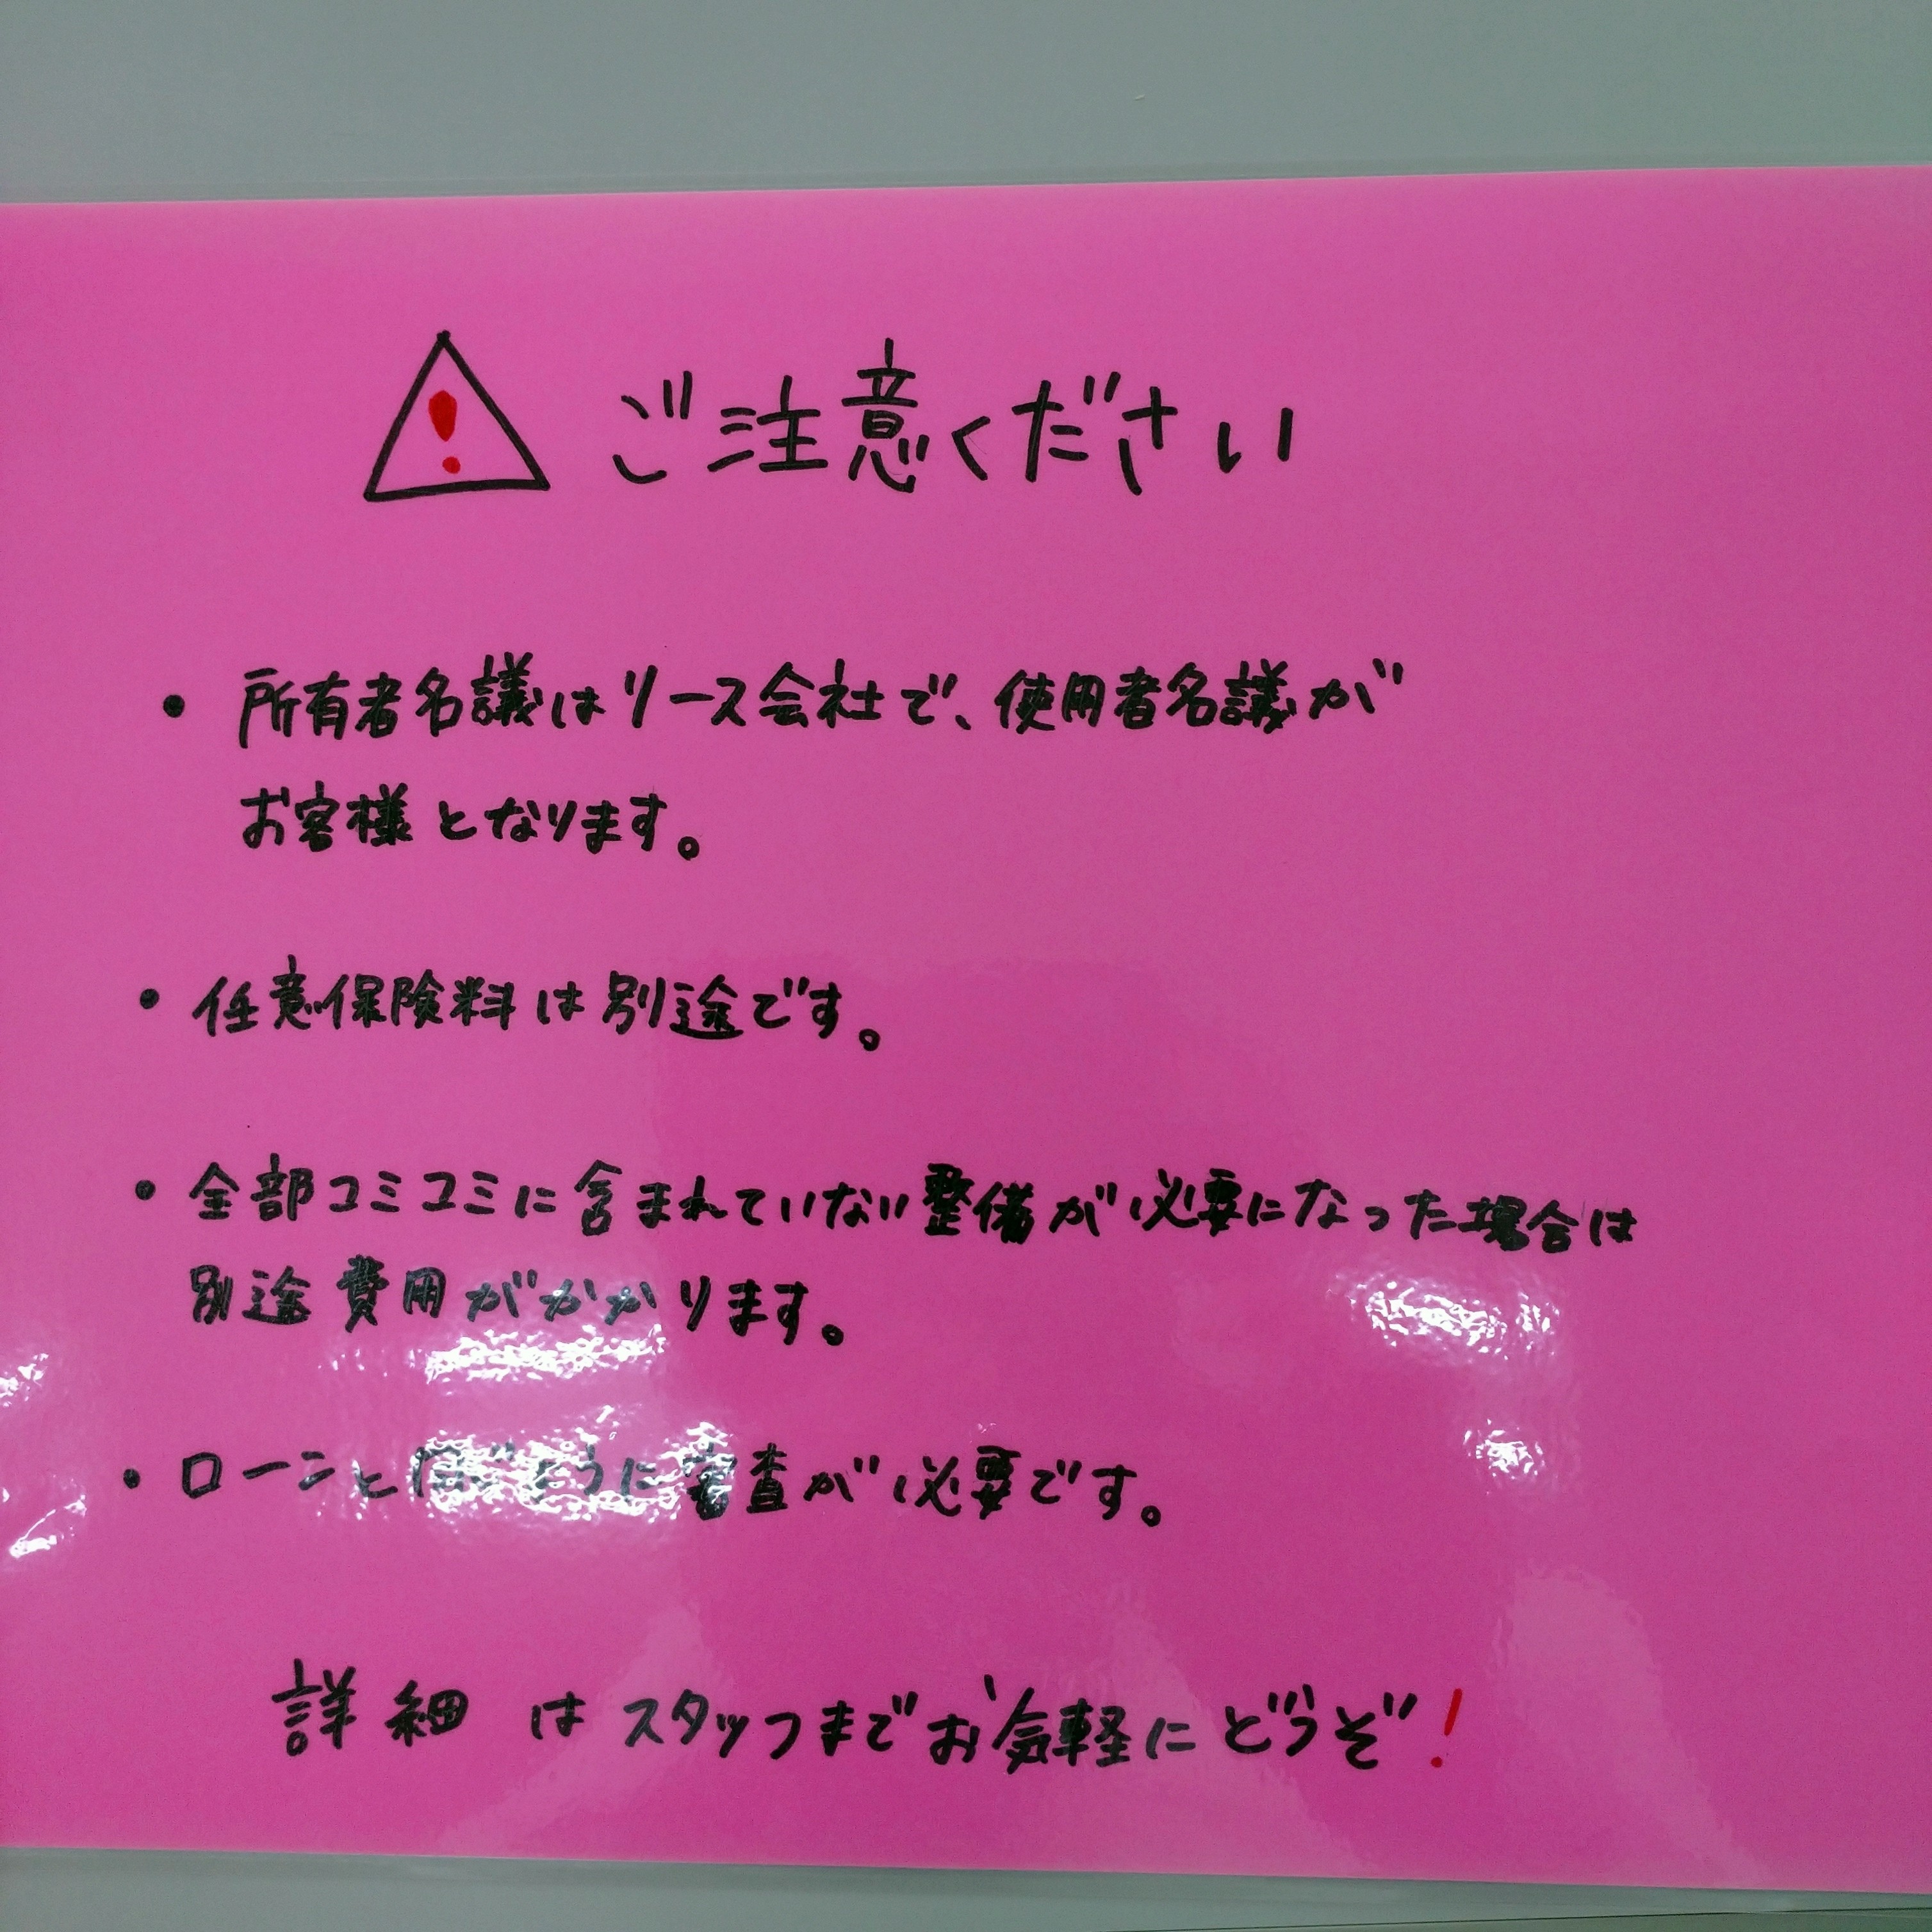 ご注意ください
・所有者名議はリース会社で、使用者名議が
お客様となります。
・任意保険料は別途です。
・全部コミコミに含まれていない整備が必要になった場合は
別途費用がかかります。
・ローンと同じように審査が必要です。
詳細はスタッフまでお気軽にどうぞ!